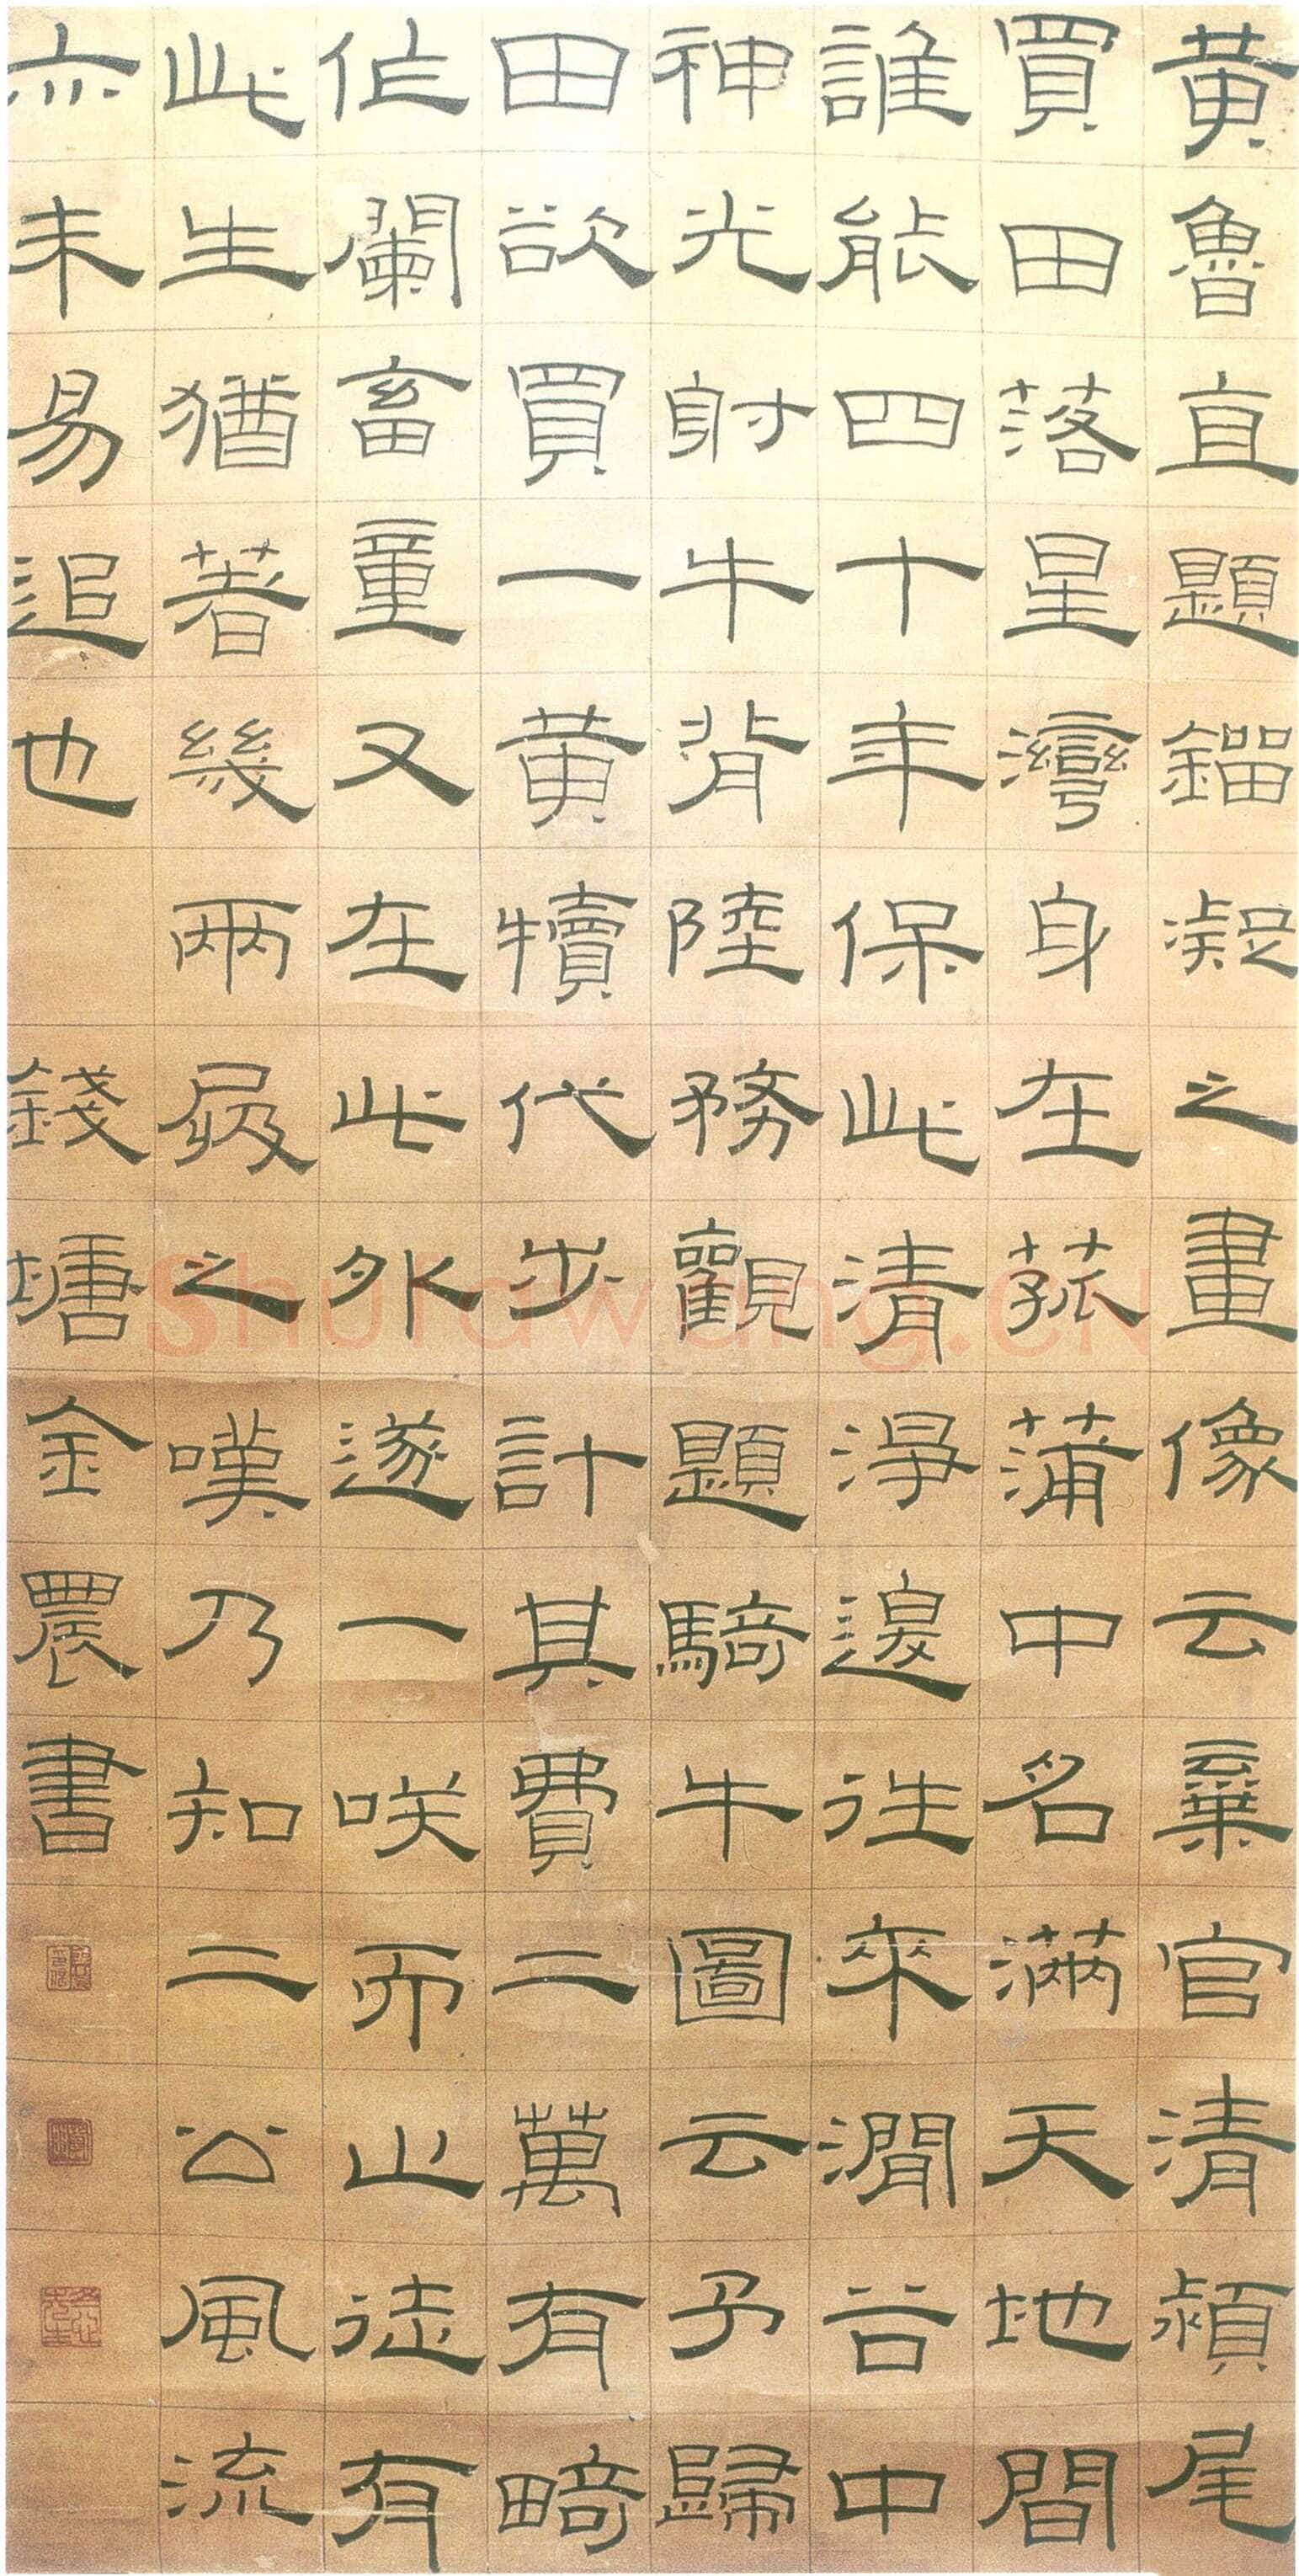 黃魯直題鎦凝之畫像云棄官清潁尾
買田落星灣身在菰蒲中名滿天地間
誰能四十年保此清淨邊往來澗谷中
神光射牛背陸務觀題騎牛圖云予歸
田欲買一黃犢代步計其費二萬有畸
作闌畜童又在此外遂一咲而止徒有
此生猶著幾兩屐之嘆乃知二公風流
亦未易追也 錢塘金農書
Shufawang.cn